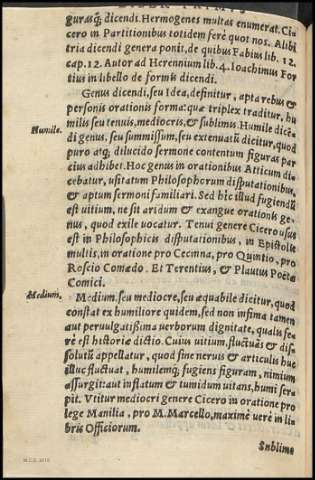 LIBER PRIMVS
gurasq́; dicendi. Hermogenes multas enumerat. Ci
cero in Partitionibus totidem ferè quot nos. Alibi
tria dicendi genera ponit, de quibus Fabius lib. 12.
cap. 12. Autor ad Herennium lib. 4. Ioachimus For
tius in libello de formis dicendi.
Genus dicendi, seu Idea, definitur, apta rebus &
personis orationis forma: quæ triplex traditur, hu
milis seu tenuis, mediocris, & sublimis. Humile dicē
Humile.
di genus, seu summissum, seu extenuatū dicitur, quod
puro atq́; dilucido sermone contentum figuras par
cius adhibet. Hoc genus in orationibus Atticum di
cebatur, usitatum Philosophorum disputationibus,
& aptum sermoni familiari. Sed hîc illud fugiendū
est uitium, ne sit aridum & exangue orationis ge-
nus, quod exile uocatur. Tenui genere Cicero usus
est in Philosophicis disputationibus, in Epistolis
multis, in oratione pro Cecinna, pro Quintio, pro
Roscio Comœdo. Et Terentius, & Plautus Poëtæ
Comici.
Medium.
Medium, seu mediocre, seu æquabile dicitur, quod
constat ex humiliore quidem, sed non infima tamen
aut peruulgatißima uerborum dignitate, qualis fe-
rè est historiæ dictio. Cuius uitium, fluctuãs & dis
solutũ appellatur, quod sine neruis & articulis huc
illuc fluctuat, humilemq́; fugiens figuram, nimium
assurgit: aut inflatum & tumidum uitans, humi ser
pit. Vtitur mediocri genere Cicero in oratione pro
lege Manilia, pro M. Marcello, maximè uerè in li-
bris Officiorum.
Sublime